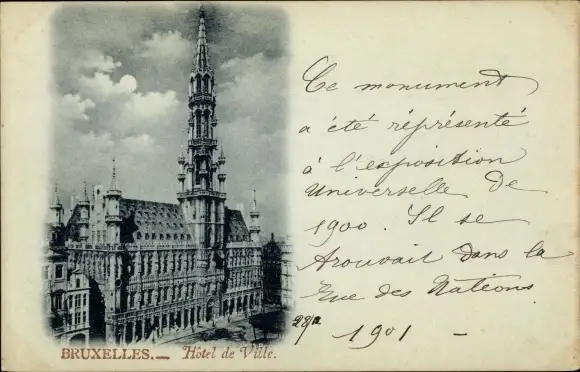 Ce monument
a été représenté
à l'exposition
Universelle De
1900. Il se
trouvait dans la
Rue des Nations
1901 —
BRUXELLES.— Hôtel de Ville.